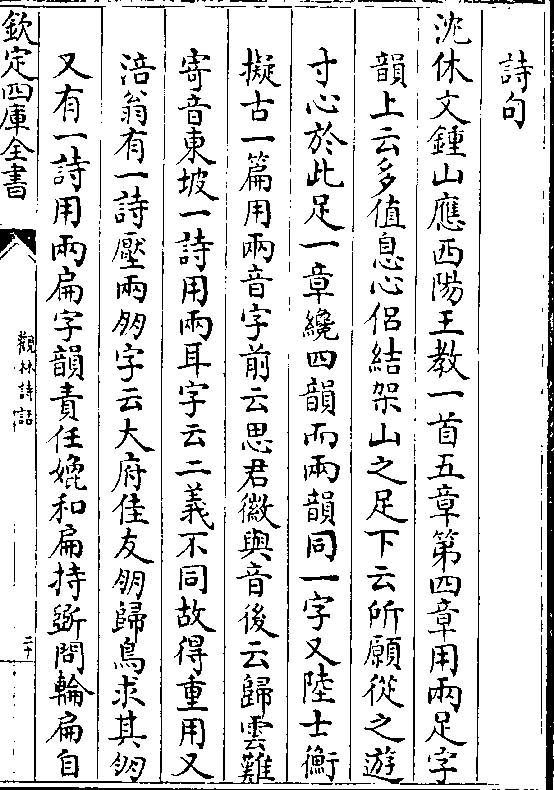 詩句
沈休文鍾山應西陽王教一首五章第四章用兩足字
韻上云多值息心侶結架山之足下云所願從之遊
寸心於此足一章纔四韻而兩韻同一字又陸士衡
擬古一篇用兩音字前云思君徽與音後云歸雲難
寄音東坡一詩用兩耳字云二義不同故得重用又
涪翁有一詩壓兩朋字云大府佳友朋歸鳥求其朋
又有一詩用兩扁字韻責任媲和扁持斲問輪扁自
欽定四庫全書
觀林詩話
二十